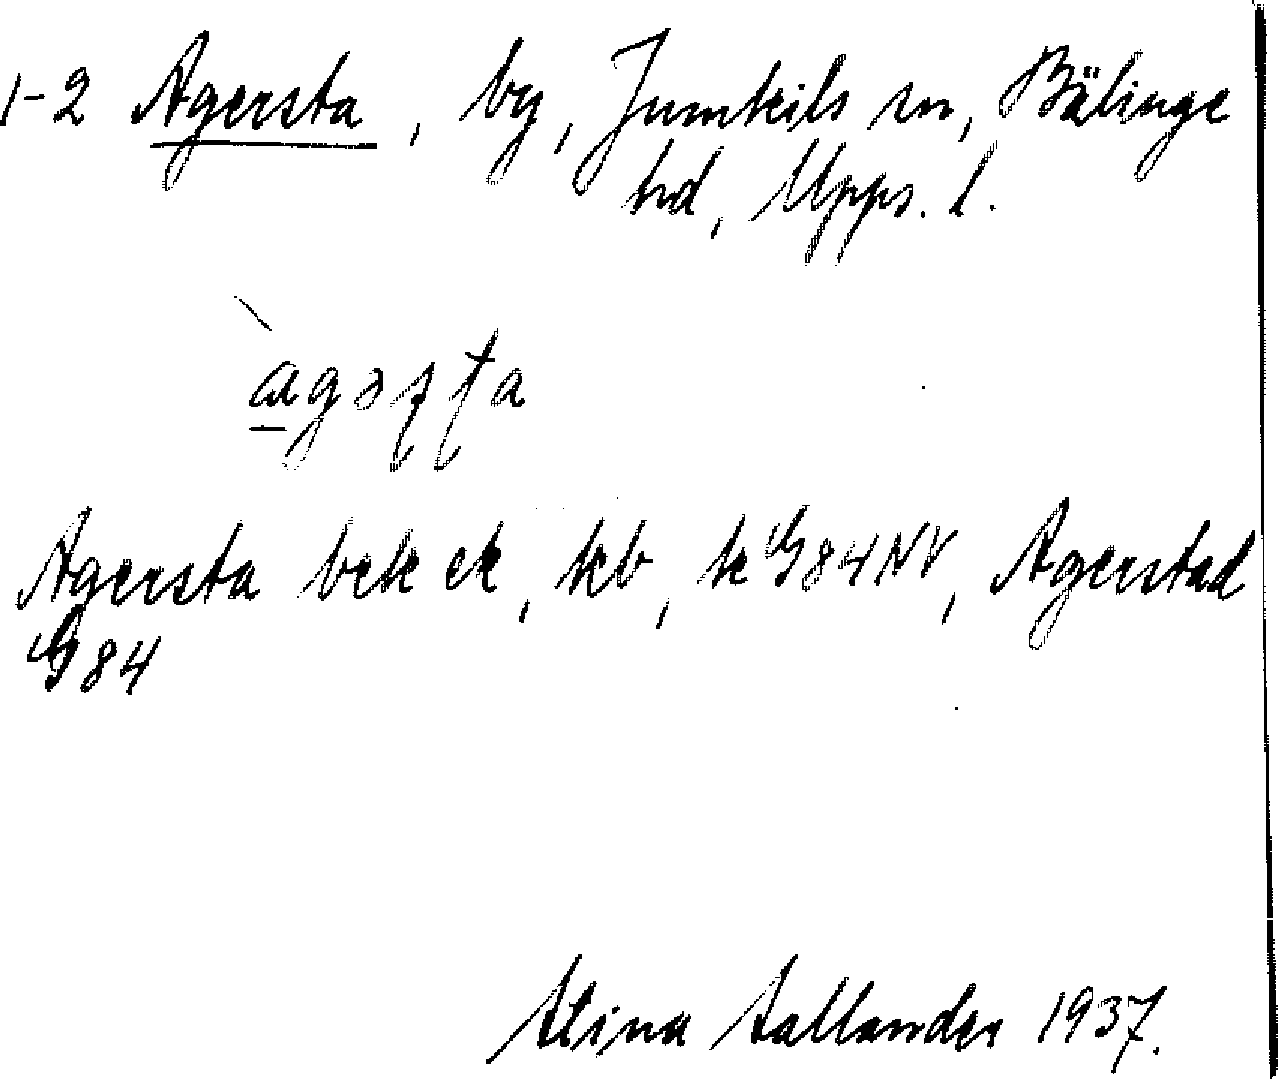 1-2 Agersta, by, Jumkils sn, Bälinge
hd, Upps. l.
àgəʂʈa
Agersta bek ek, kb, k G84NV, Agerstad
G84
Stina Sallander 1937.